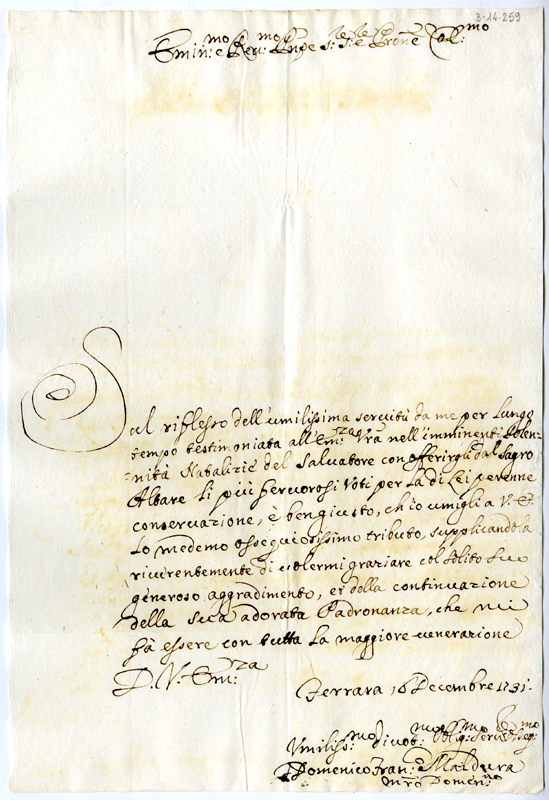 3-14-259
Emin:mo e Rev:mo Pnpe s:re s:re e Prone Coll:mo
Sul riflesso dell'umilissima servitù da me per lungo
tempo testimoniata all'Em:za Vrã nell'imminenti Solen-
-nità Natalizie del Salvatore con offerirgli dal Sagro
Altare li più fervorosi Voti per la di Lei perenne
conservazione, è ben giusto, ch'io umigli a V. E.
lo medemo ossequiosissimo tributo, supplicandola
riverentemente di volermi graziare col solito suo
generoso aggradimento, et della continuazione
della sua adorata Padronanza, che mi
fà essere con tutta la maggiore venerazione
D. V. Em:za
Ferrara 16 Decembre 1731
Umiliss:mo divot:mo Obblig:mo Serv:re
Domenico Fran:co Maldura